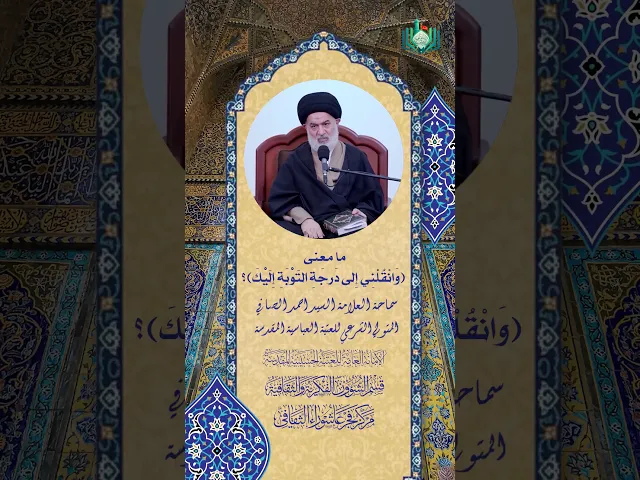 ما معنى
(وَانْقُلْني إلى دَرجَة التوْبة اليْك)؟
سماحة العلامة السيد احمد الصافي
المتولي الشرعي للعتبة العباسية المقدسة
الأمانة العامة للعتبة الحسينية المقدسة
قسم الشؤون الفكرية والثقافية
مركز فجر عاشوراء الثقافي